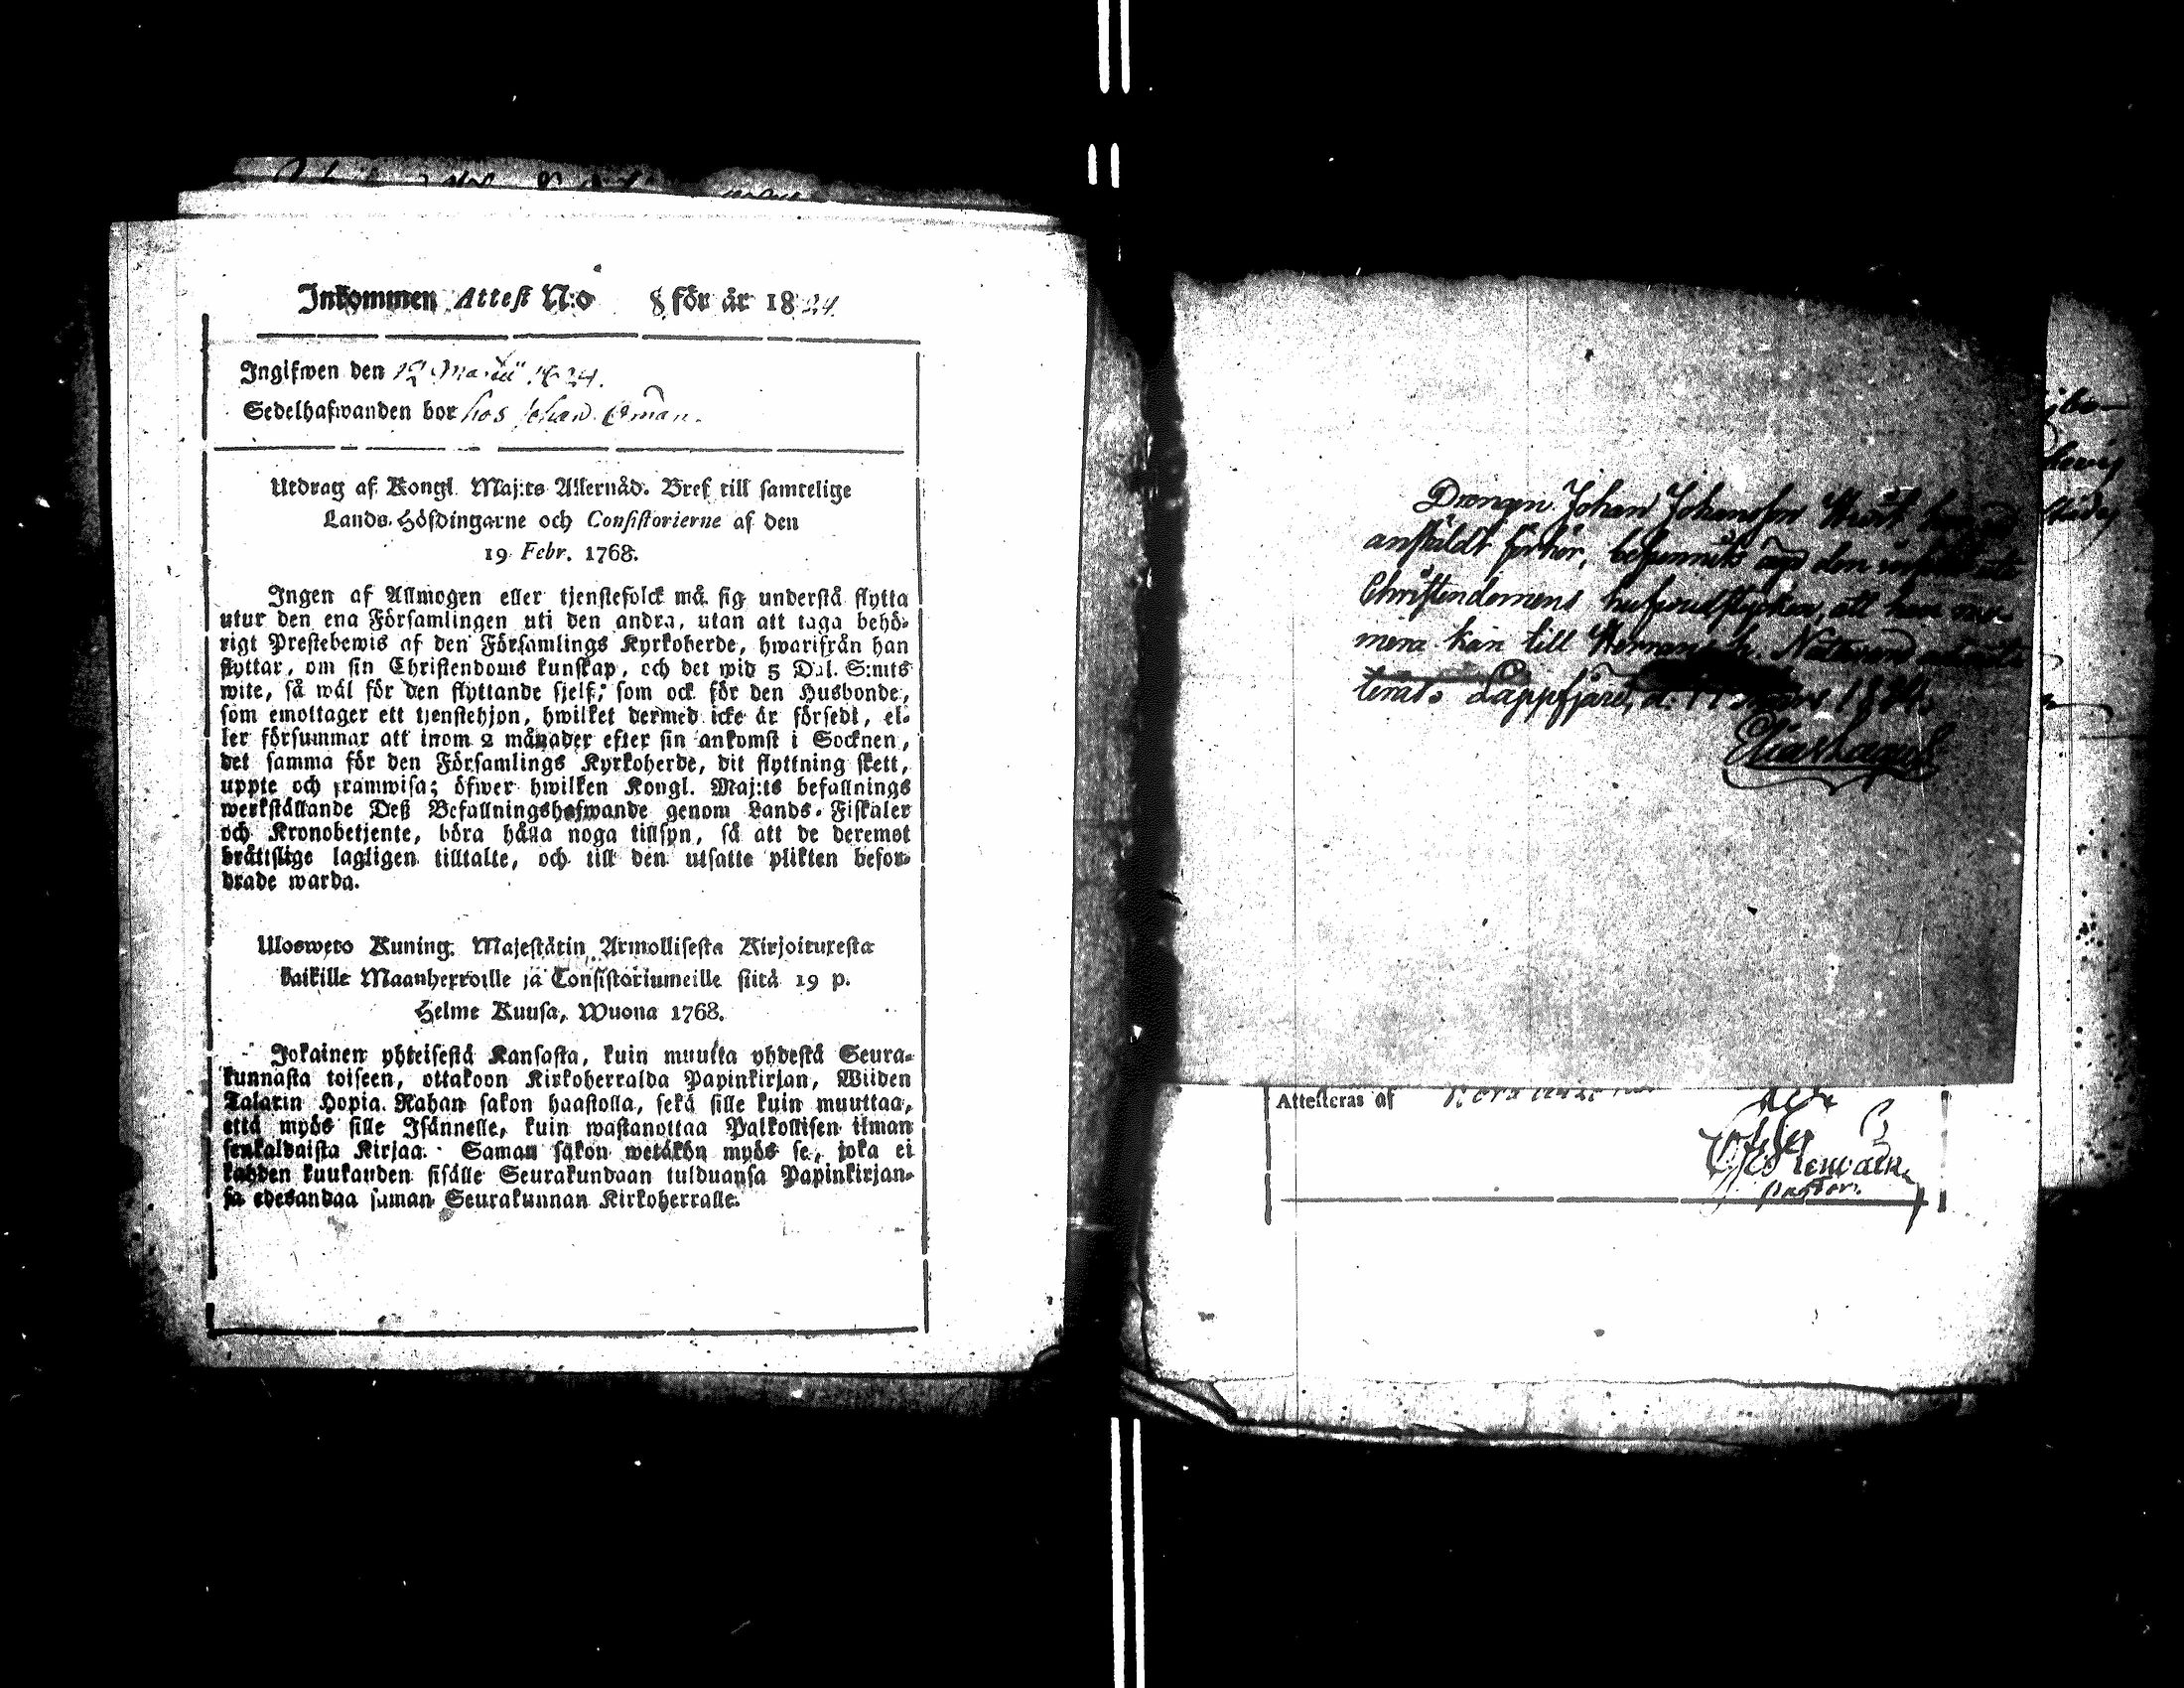 Inkommen Attest N:o 8 för år 1824.
Ingifwen den 12 Martii 1824.
Sedelhafwanden bor hos Johan
Utdrag af Kongl. Maj:ts Allernåd. Bref till samtelige
Lands-Höfdingarne och Consistorierne af den
19 Febr. 1768.
Ingen af Allmogen eller tjenstefolck må sig understå flytta
utur den ena Församlingen uti den andra, utan att taga behö-
rigt Prestebewis af den Församlings Kyrkoherde, hwarifrån han
flyttar, om sin Christendoms kunskap, och det wid 5 Dal. S:mts
wite, så wäl för den flyttande sjelf, som ock för den Husbonde,
som emottager ett tjenstehjon, hwilket dermed icke är försedt, el-
ler försummar att inom 2 månader efter sin ankomst i Socknen,
det samma för den Församlings Kyrkoherde, dit flyttning skett,
uppte och framwisa; öfwer hwilken Kongl. Maj:ts befallnings
werkställande Deß Befallningshafwande genom Lands-Fiskaler
och Kronobetjente, böra hålla noga tillsyn, så att de deremot
bråttslige lagligen tilltalte, och till den utsatte plikten befor-
drade warda.
Ulosweto Kuning. Majestätin Armollisesta Kirjoituxesta
kaikille Maanherroille ja Consistoriumeille siitä 19 p.
Helme Kuusa, Wuona 1768.
Jokainen yhteisestä Kansasta, kuin muutta yhdestä Seura-
kunnasta toiseen, ottakoon Kirkoherralda Papinkirjan, Wiiden
Talarin Hopia Rahan sakon haastolla, sekä sille kuin muuttaa,
että myös sille Isännelle, kuin wastanottaa Palkollisen ilman
senkaldaista Kirjaa. Saman sakon wetäkön myös se, joka ei
kahden kuukauden sisälle Seurakundaan tulduansa Papinkirjan-
sa edesandaa saman Seurakunnan Kirkoherralle.
Drengen Johan Johansson
anstäldt förhör, befunnits äga den
Christendomens hufvudstycken, att han nu-
mera kan till Herrans h. Nattvard
teras. Lappfjärd, d. 11 Mars 1824.
Attesteras af
Pastor.